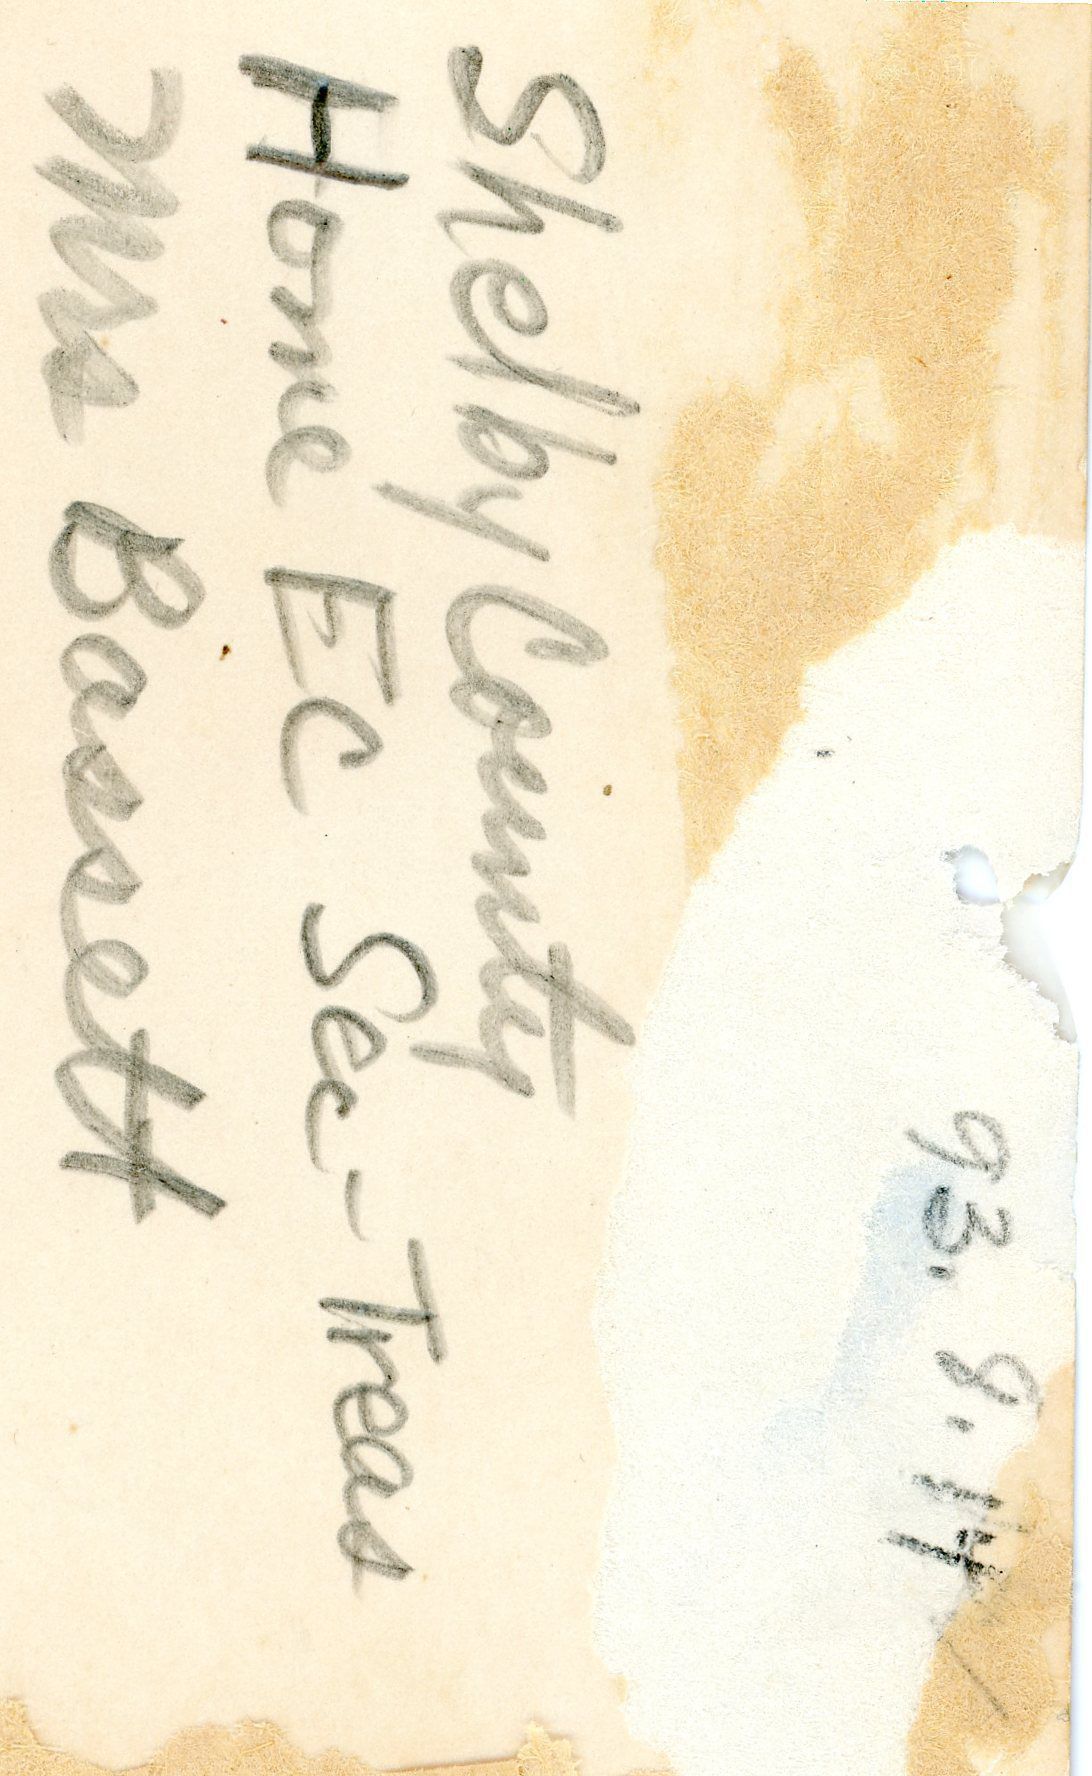 93.9.14
Shelby County
Home Ec Sec-Treas
Mrs Bassett